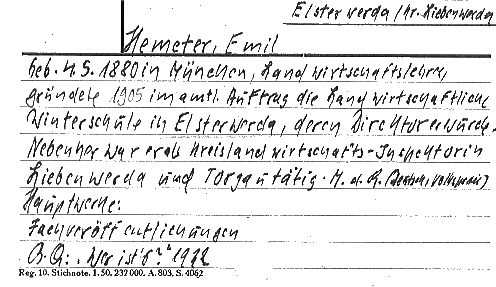 Elsterwerda/Kr. Liebenwerda
Hemeter, Emil
Geb. 4.5.1880 in München, Landwirtschaftslehrer,
gründete 1905 im amtl. Auftrag die Landwirtschaftliche
Winterschule in Elsterwerda, deren Direktor er wurde.
Nebenher war er als Kreislandwirtschafts-Inspektor in
Liebenwerda und Torgau tätig. M. d. R. (Deutsch. Volkspartei)
Hauptwerke:
Fachveröffentlichungen
B.Q.: "Wer ist's?" 1922
Reg. 10. Stichnote. 1. 50. 232 000. A. 803. S. 4062